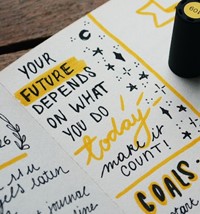 YOUR
FUTURE
DEPENDS
ON WHAT
YOU DO
today
make it
COUNT!
GOALS
26
later
journal